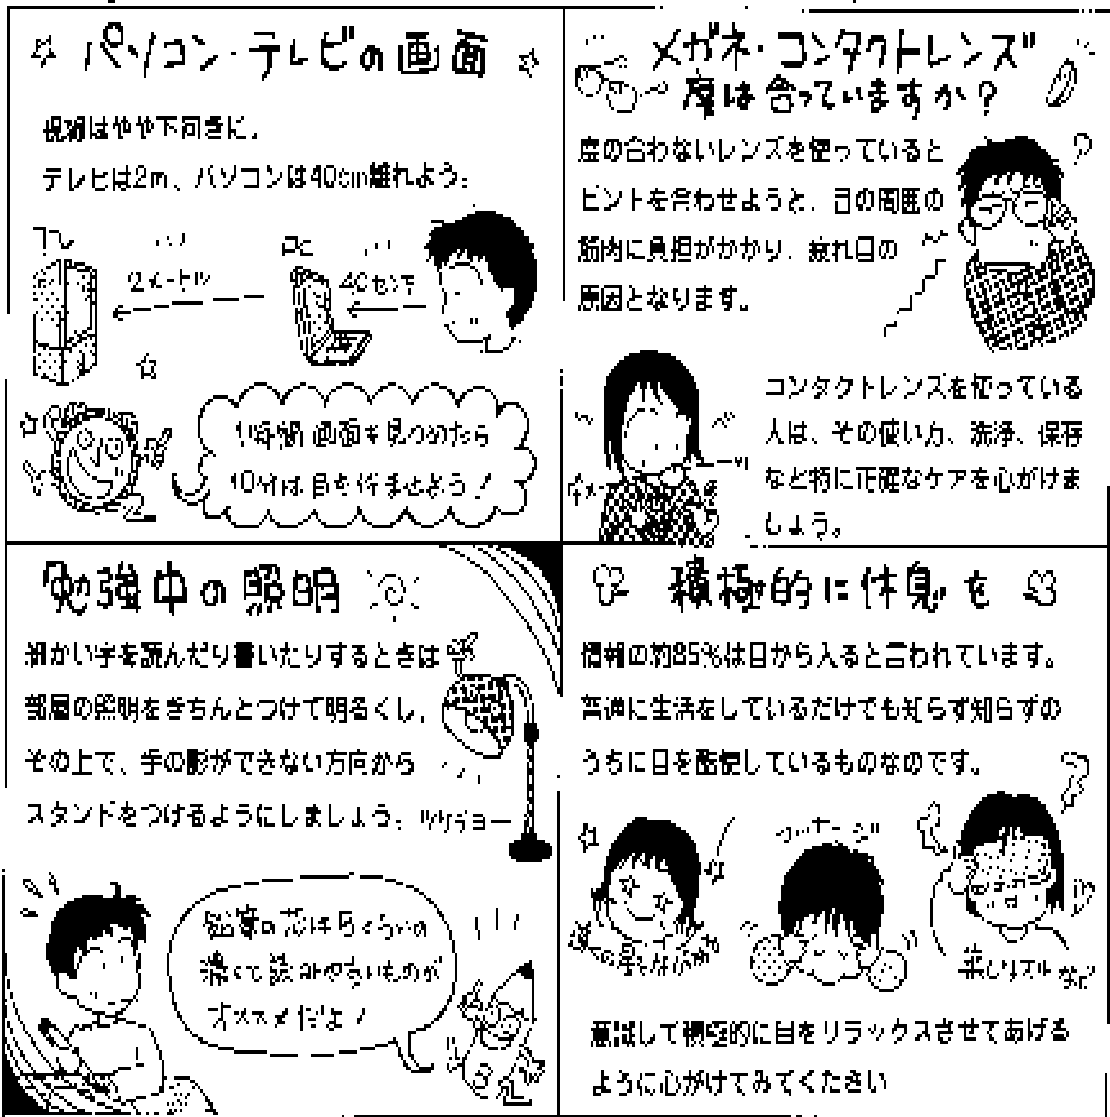 パソコン・テレビの画面
視線はやや下向きに。
テレビは2m、パソコンは40cm離れよう。
テレビ
PC
2メートル
40センチ
1時間 画面を見つめたら
10分は目を休ませよう！
メガネ・コンタクトレンズ
度は合っていますか？
度の合わないレンズを使っていると
ピントを合わせようと、目の周囲の
筋肉に負担がかかり、疲れ目の
原因となります。
コンタクトレンズを使っている
人は、その使い方、洗浄、保存
など特に正確なケアを心がけま
しょう。
勉強中の照明
細かい字を読んだり書いたりするときは
部屋の照明をきちんとつけて明るくし、
その上で、手の影ができない方向から
スタンドをつけるようにしましょう。
鉛筆の芯はBくらいの
濃くて読みやすいものが
オススメだよ！
積極的に休息を
情報の約85%は目から入ると言われています。
普通に生活をしているだけでも知らず知らずの
うちに目を酷使しているものなのです。
マッサージ
蒸しタオルなど
意識して積極的に目をリラックスさせてあげる
ように心がけてみてください